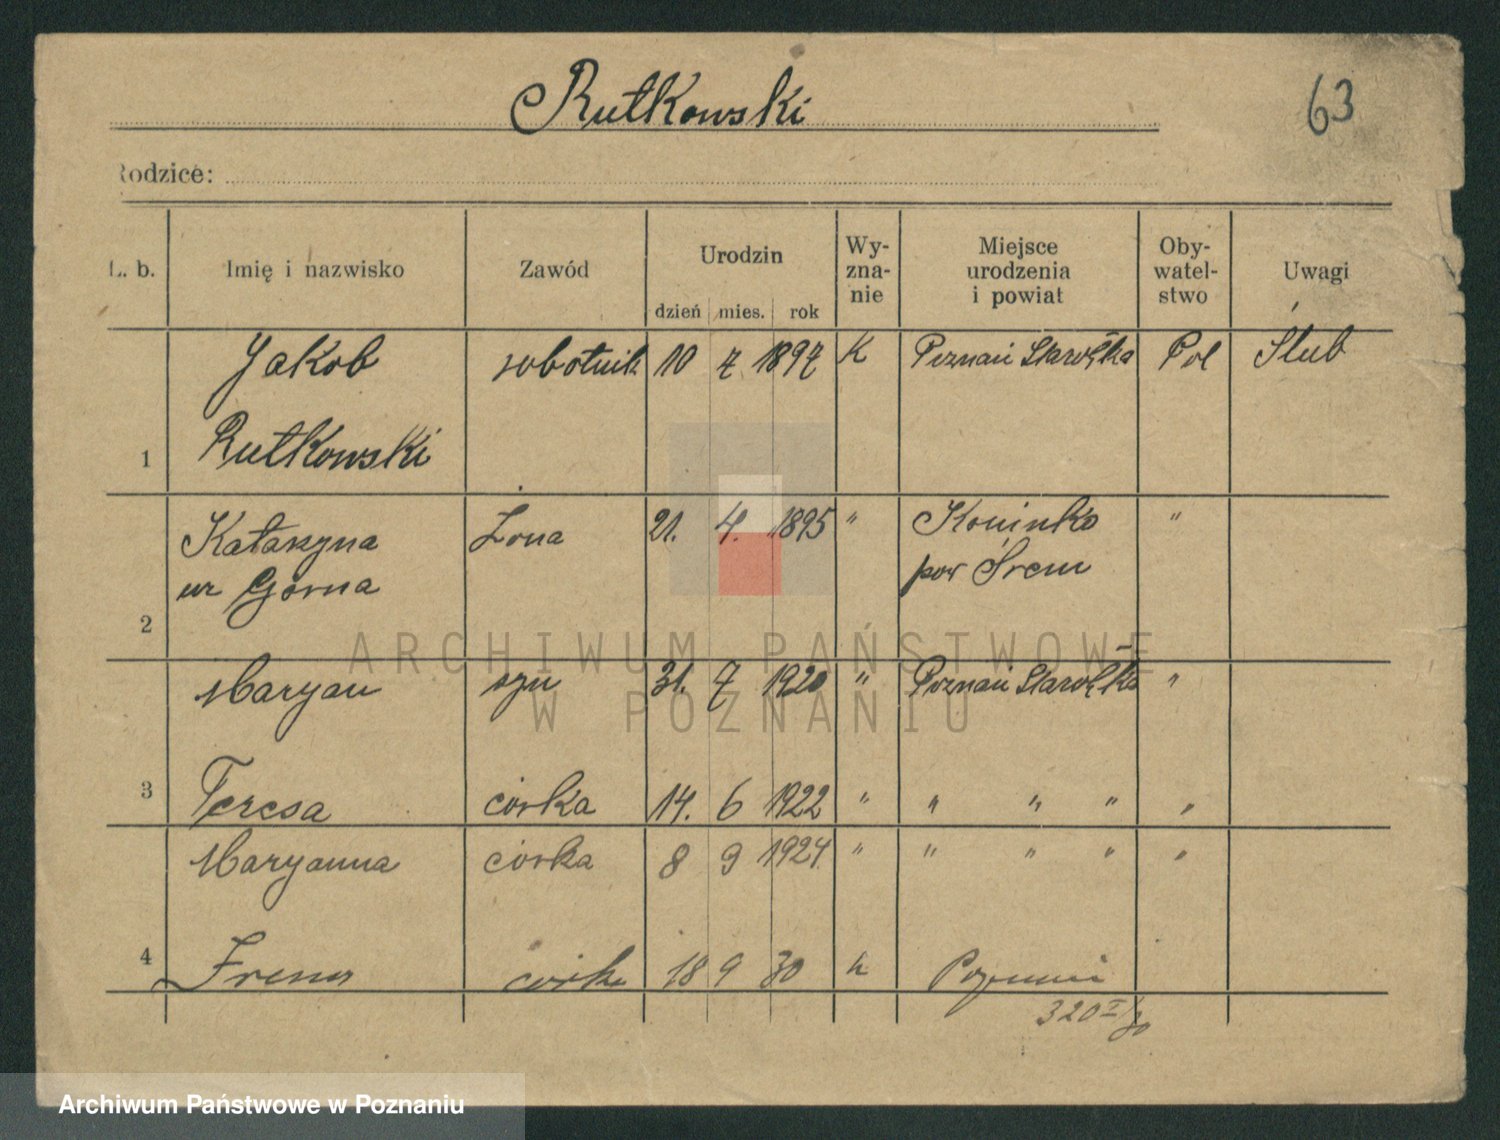 Rutkowski
63
Rodzice:
L. b. Imię i nazwisko Zawód Urodzin dzień mies. rok Wy-zna-nie Miejsce urodzenia i powiat Oby-watel-stwo Uwagi
Jakob robotnik 10 7 1897 K Poznań Starołęka Pol Ślub
1 Rutkowski
Katarzyna Żona 21. 4. 1895 " Koninko "
ur Górna pow Śrem
2
Maryan syn 31. 7 1920 " Poznań Starołęka "
3 Teresa córka 14. 6 1922 " " " " "
Maryanna córka 8 9 1924 " " " " "
4 Irena córka 18 9 30 k Poznań
320 I/30
ARCHIWUM PAŃSTWOWE
W POZNANIU
Archiwum Państwowe w Poznaniu